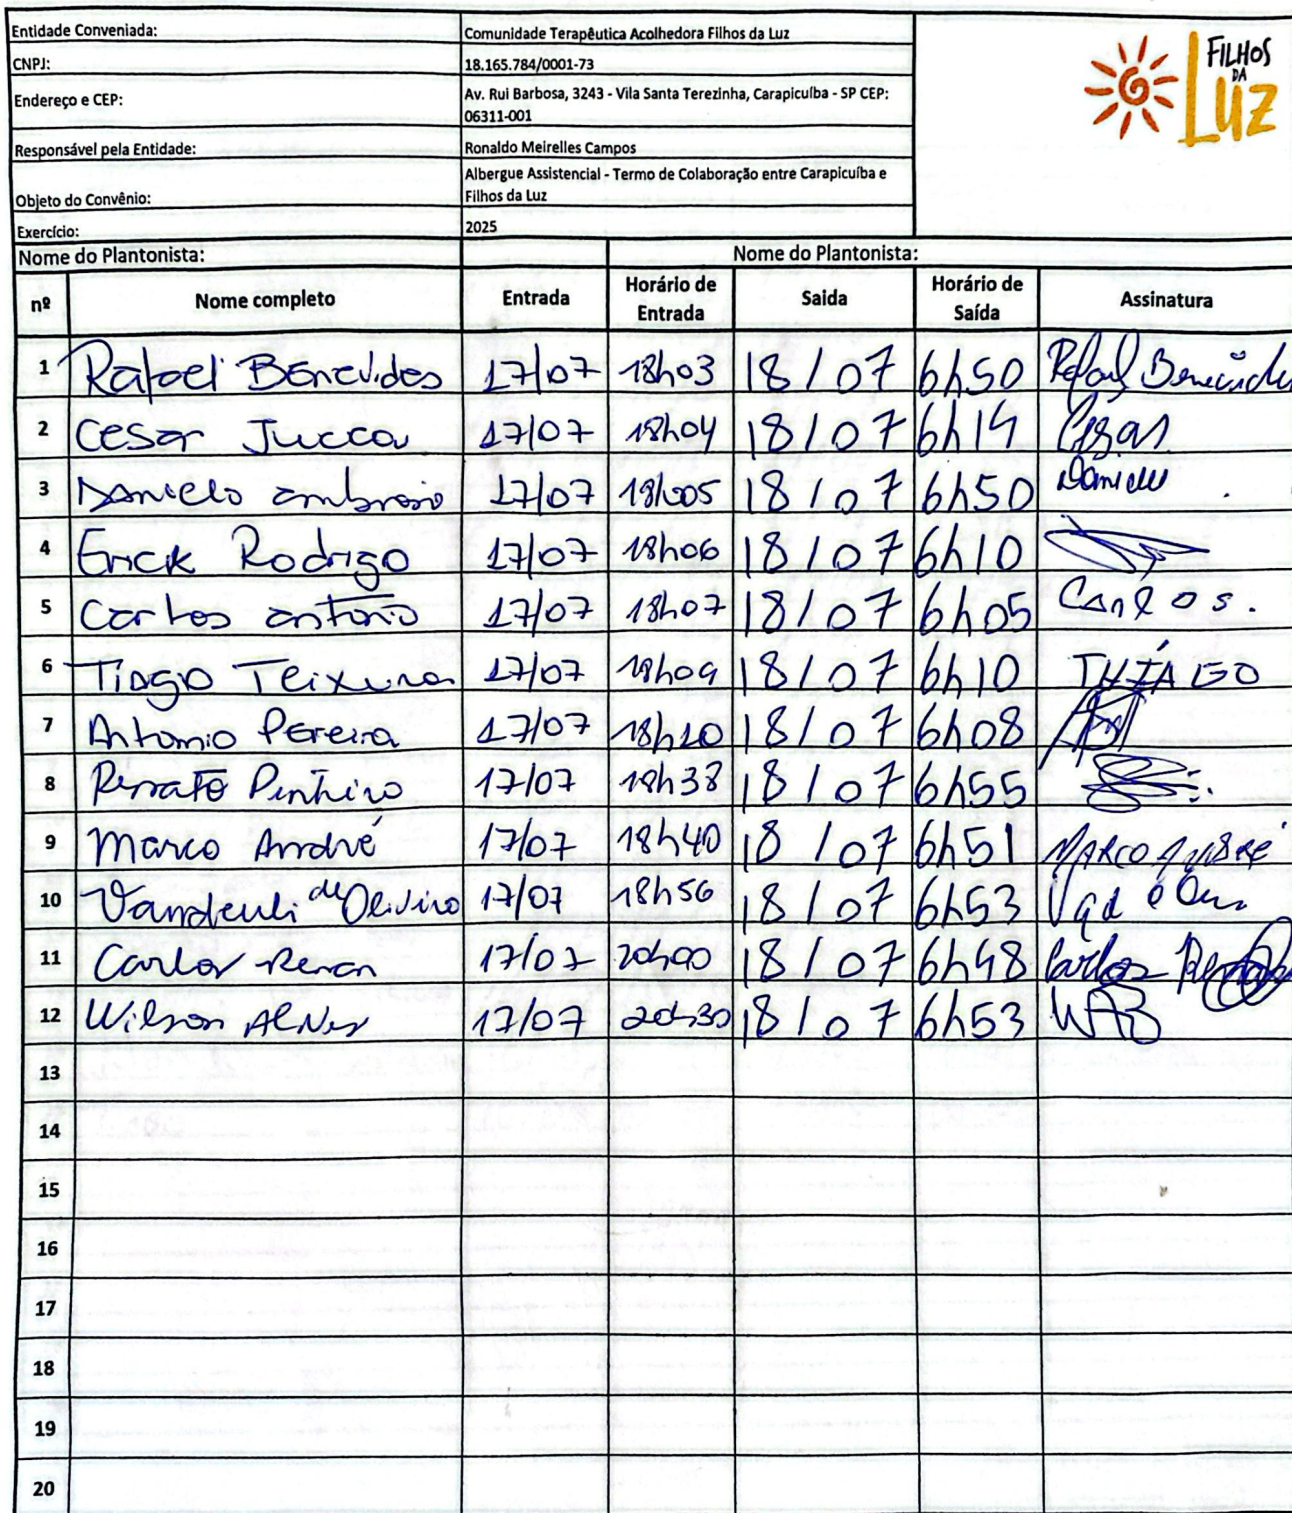 Entidade Conveniada: Comunidade Terapêutica Acolhedora Filhos da Luz
FILHOS DA LUZ
CNPJ: 18.165.784/0001-73
Endereço e CEP: Av. Rui Barbosa, 3243 - Vila Santa Terezinha, Carapicuíba - SP CEP: 06311-001
Responsável pela Entidade: Ronaldo Meirelles Campos
Objeto do Convênio: Albergue Assistencial - Termo de Colaboração entre Carapicuíba e Filhos da Luz
Exercício: 2025
Nome do Plantonista: Nome do Plantonista:
nº Nome completo Entrada Horário de Entrada Saida Horário de Saída Assinatura
1 Rafael Benevides 17/07 18h03 18/07 6h50 Rafael Benevides
2 Cesar Jucca 17/07 18h04 18/07 6h14 Cesar
3 Danielo ambrosio 17/07 18h05 18/07 6h50
4 Erick Rodrigo 17/07 18h06 18/07 6h10
5 Carlos antonio 17/07 18h07 18/07 6h05 Carlos.
6 Tiago Teixeira 17/07 18h09 18/07 6h10 THIAGO
7 Antonio Pereira 17/07 18h10 18/07 6h08
8 Renato Pinheiro 17/07 18h38 18/07 6h55
9 Marco André 17/07 18h40 18/07 6h51 MARCO ANDRÉ
10 de 17/07 18h56 18/07 6h53
11 Carlos Renan 17/07 20h00 18/07 6h48 Carlos Renan
12 Wilson Alves 17/07 20h30 18/07 6h53
13
14
15
16
17
18
19
20